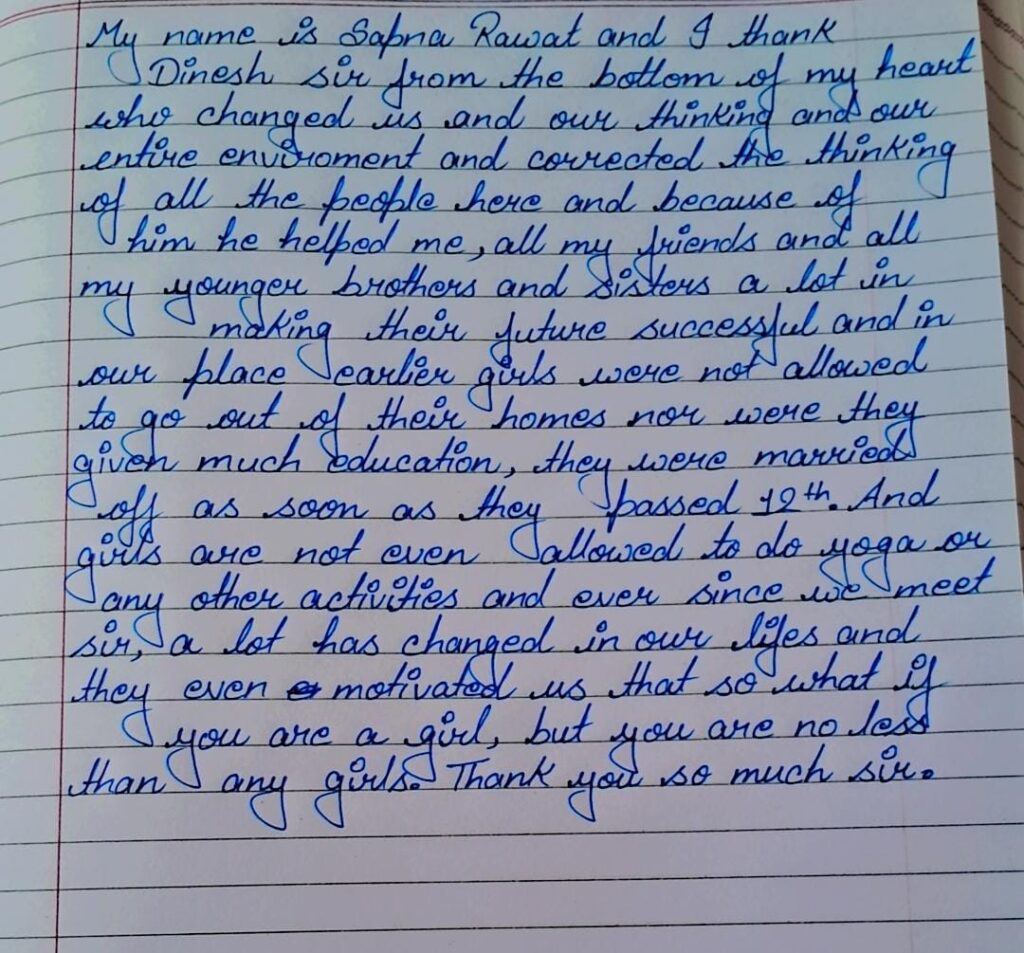 My name is Sapna Rawat and I thank
Dinesh sir from the bottom of my heart
who changed us and our thinking and our
entire enviroment and corrected the thinking
of all the people here and because of
him he helped me, all my friends and all
my younger brothers and sisters a lot in
making their future successful and in
our place earlier girls were not allowed
to go out of their homes nor were they
given much education, they were married
off as soon as they passed 12th. And
girls are not even allowed to do yoga or
any other activities and ever since we meet
sir, a lot has changed in our lifes and
they even motivated us that so what if
you are a girl, but you are no less
than any girls. Thank you so much sir.